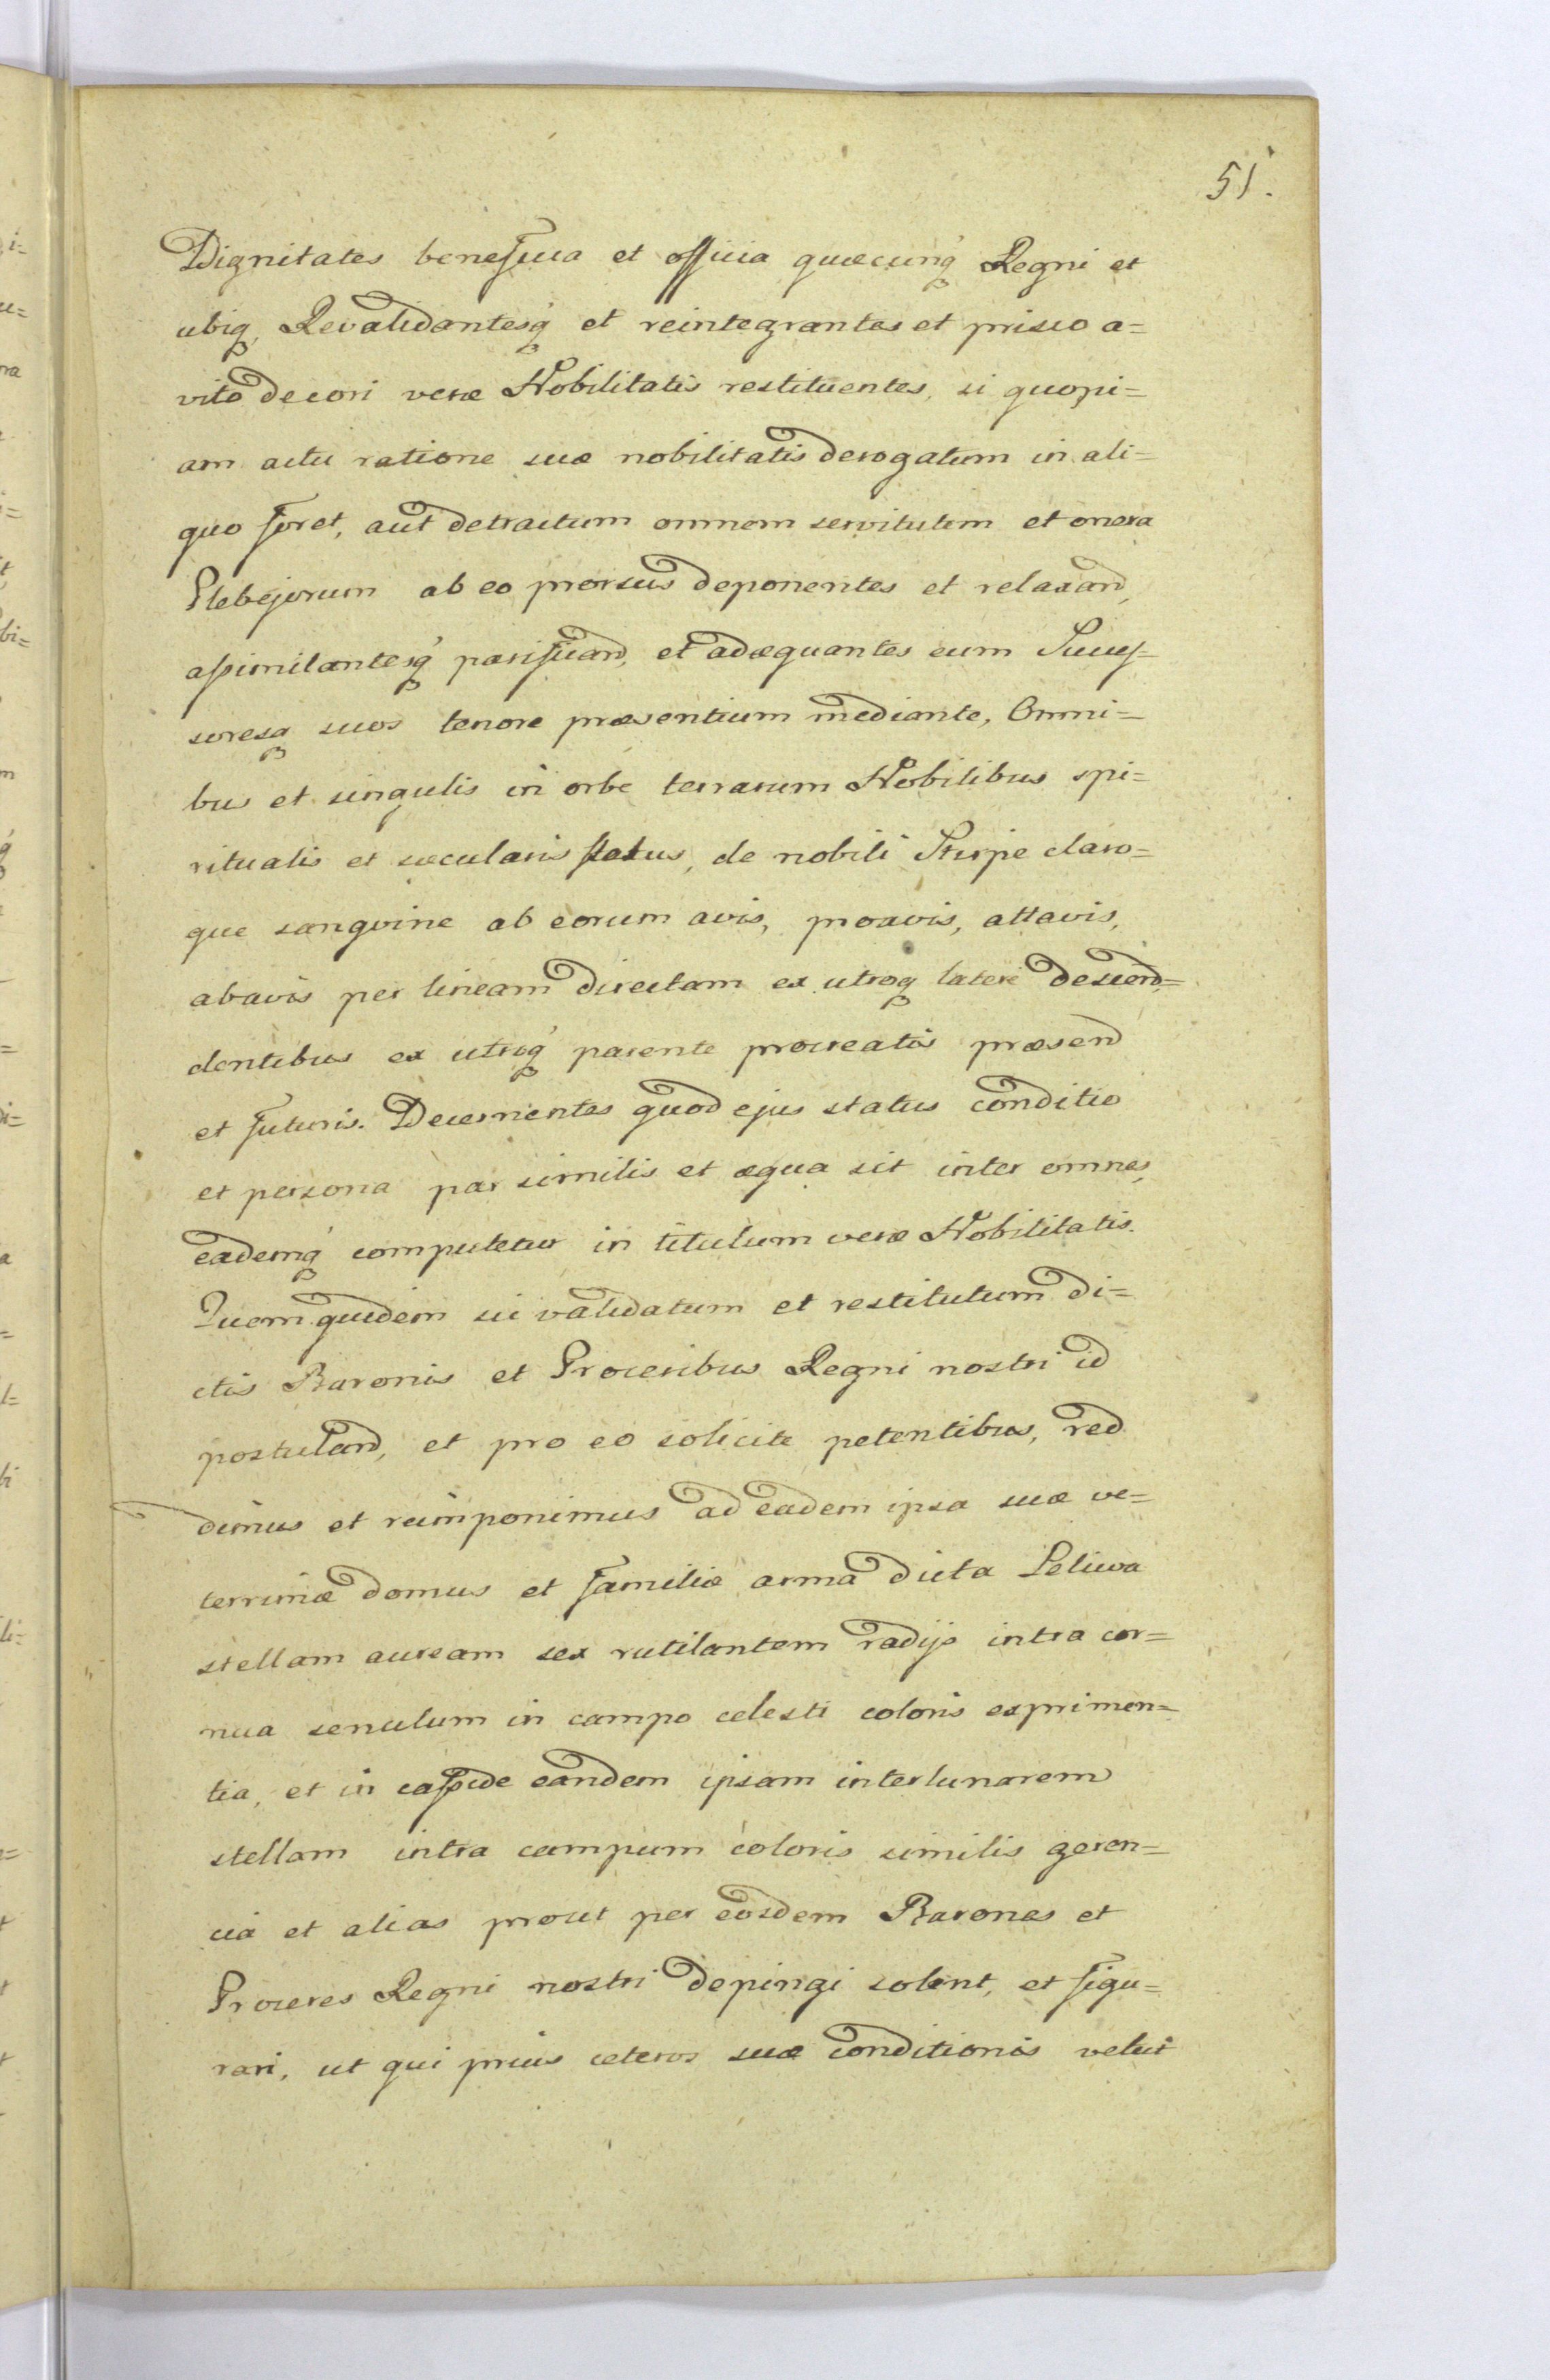 51.
Dignitates beneficia et officia quæcunq́ Regni et
ubiq, Revalidantesq́ et reintegrantes et prisco a=
vito decori veræ Nobilitatis restituentes, si quopi=
am actu ratione suæ nobilitatis derogatum in ali=
quo foret, aut detractum omnem servitutem et onera
Plebejorum ab eo prorsus deponentes et relaxand,
assimilantesq́ parificand, et adæquantes eum Succes=
soresq suos tenore præsentium mediante, Omni=
bus et singulis in orbe terrarum Nobilibus spi=
ritualis et sæcularis status, de nobili Stirpe claro=
que sangvine ab eorum avis, proavis, attavis,
abavis per lineam directam ex utroq latere descend,=
dentibus ex utroq́ parente procreatis præsend
et futuris. Decernentes quod ejus status conditio
et persona par similis et æqua sit inter omnes,
eademq́ computetur in titulum veræ Nobilitatis.
Quem quidem sic validatum et restitutum di=
ctis Baronis et Proceribus Regni nostri id
postuland, et pro eo solicite petentibus, red
dimus et reimponimus ad eadem ipsa suæ ve=
terrimæ domus et familiæ arma dicta Leliwa
stellam auream sex rutilantem radijs intra cor=
nua senulum in campo celesti coloris exprimen=
tia, et in casside eandem ipsam interlunarem
stellam intra campum coloris similis geren=
cia et alias prout per eosdem Barones et
Proceres Regni nostri depingi solent, et figu=
rari, ut qui prius ceteros suæ conditionis velut